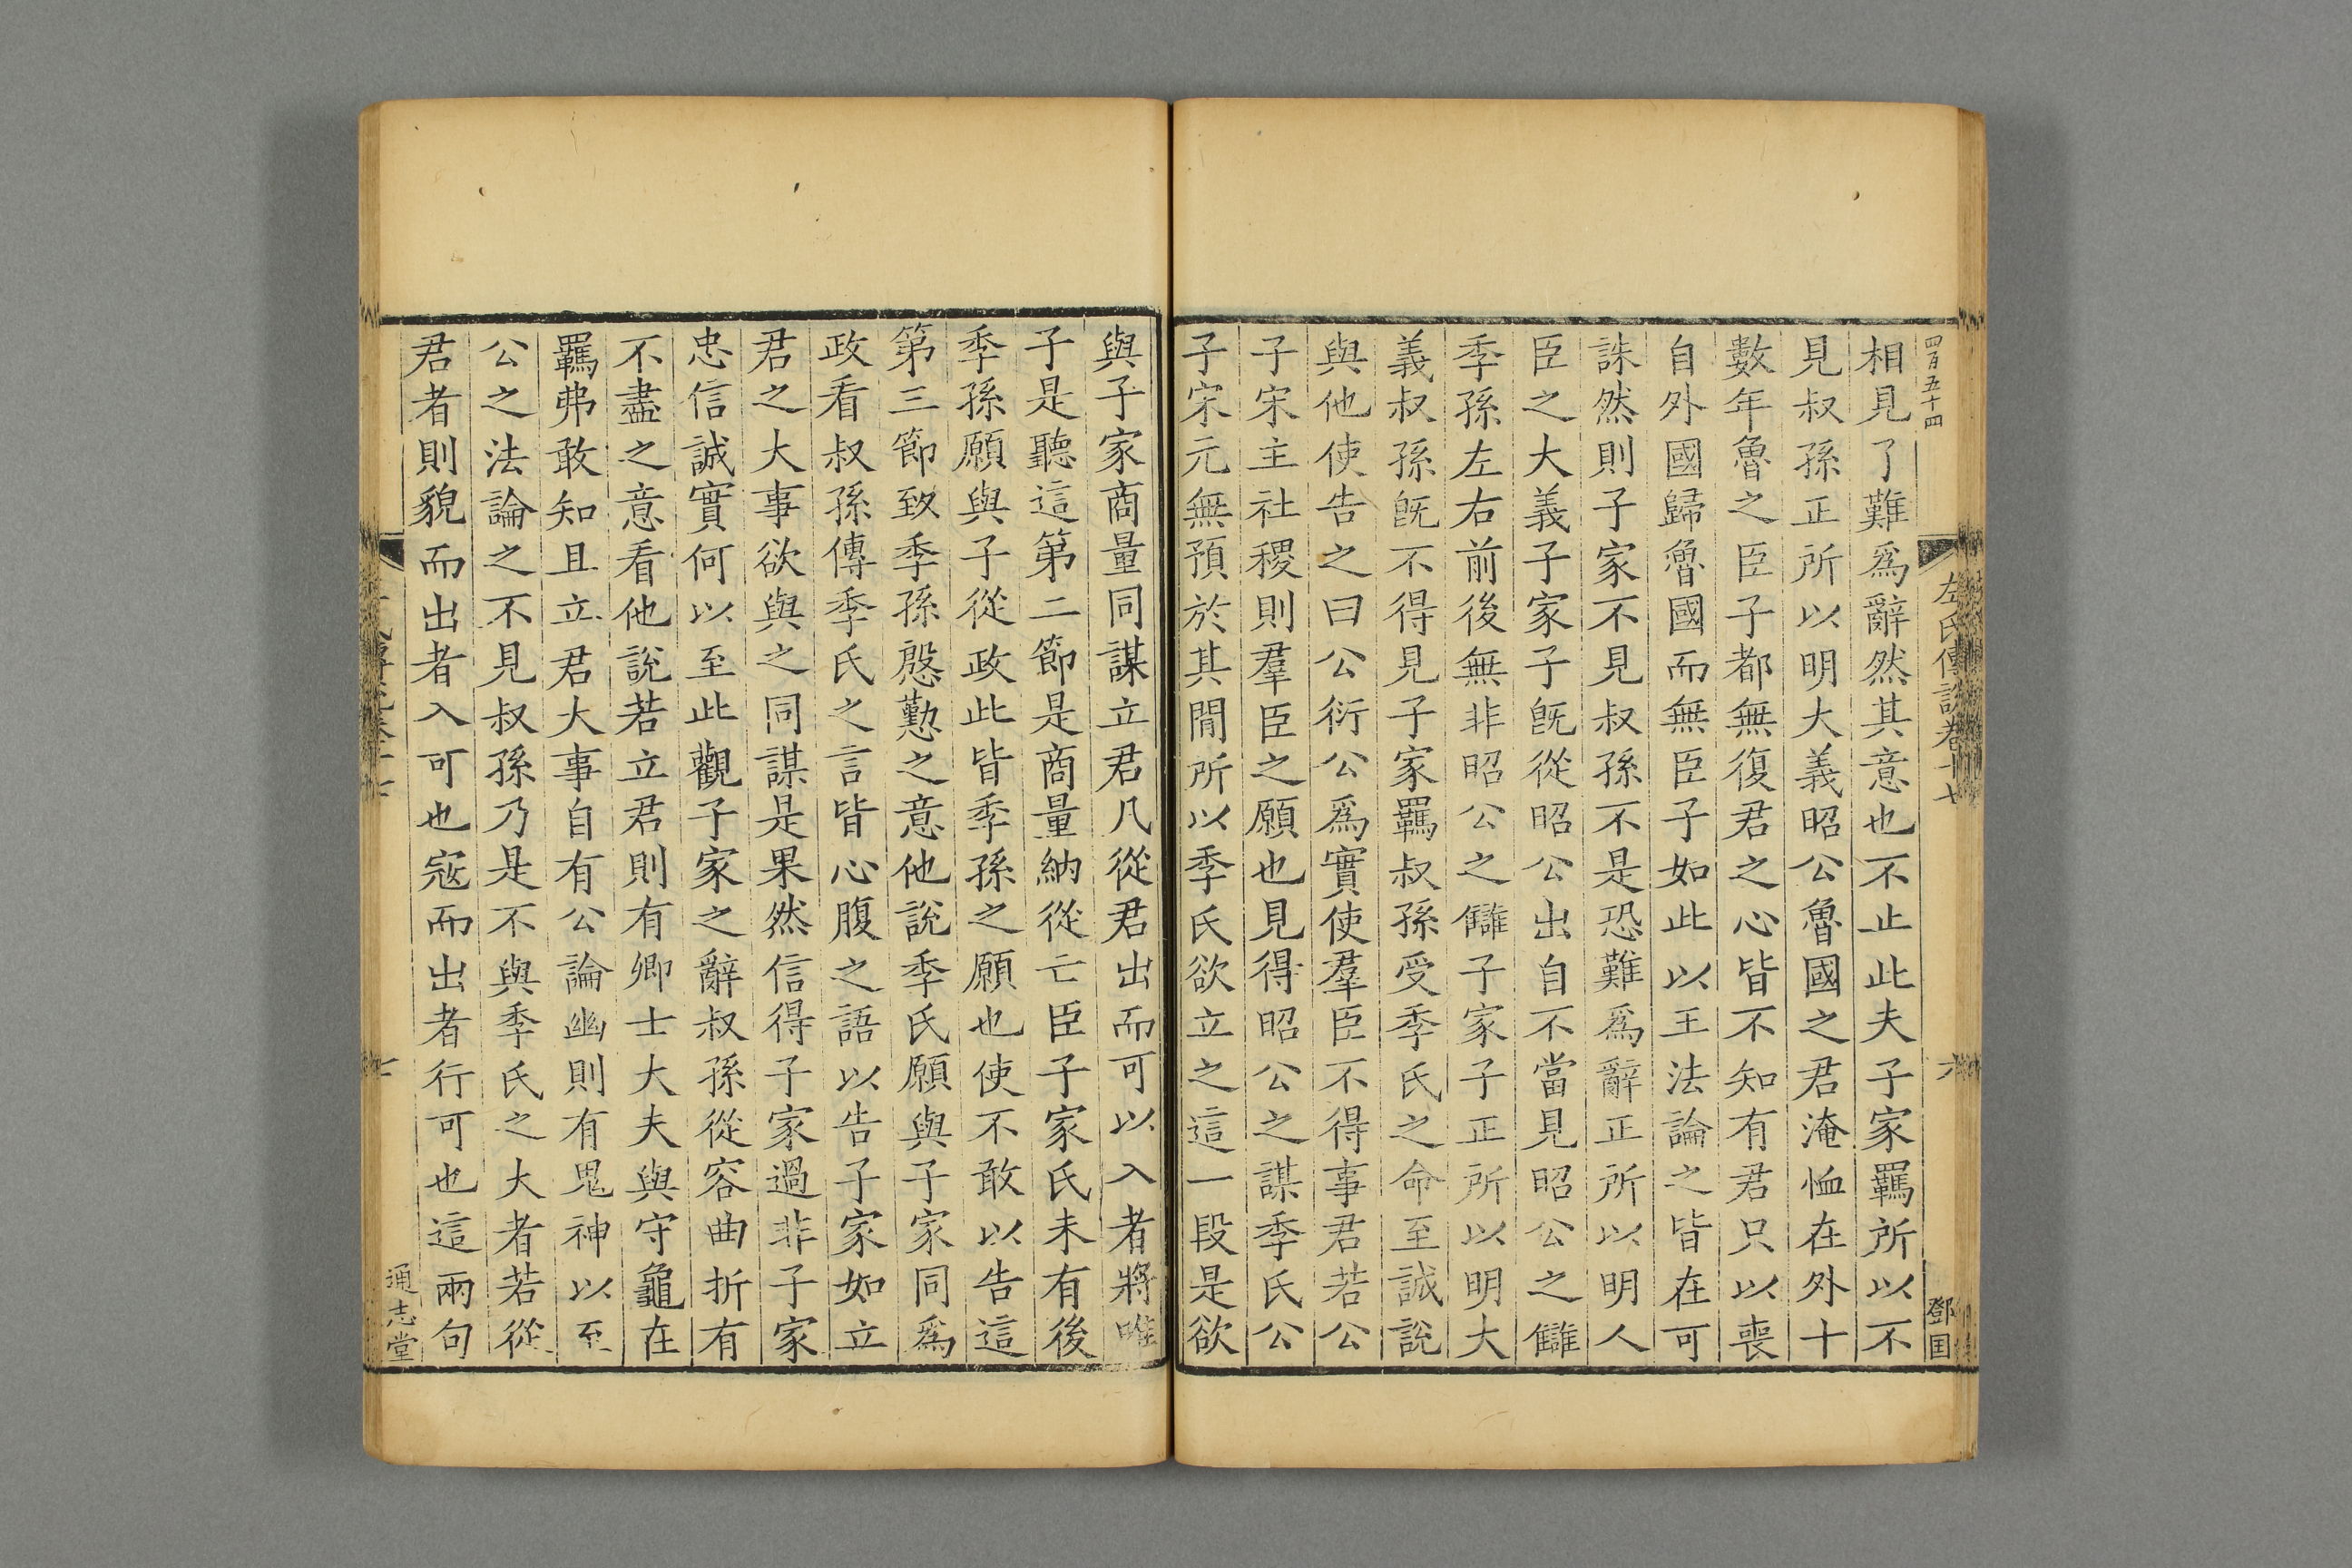 四百五十四
左氏傳說卷十七
六
鄧国
相見了難爲辭然其意也不止此夫子家羈所以不
見叔孫正所以明大義昭公魯國之君淹恤在外十
數年魯之臣子都無復君之心皆不知有君只以喪
自外國歸魯國而無臣子如此以王法論之皆在可
誅然則子家不見叔孫不是恐難爲辭正所以明人
臣之大義子家子旣從昭公出自不當見昭公之讎
季孫左右前後無非昭公之讎子家子正所以明大
義叔孫旣不得見子家羈叔孫受季氏之命至誠說
與他使告之曰公衍公爲實使羣臣不得事君若公
子宋主社稷則羣臣之願也見得昭公之謀季氏公
子宋元無預於其閒所以季氏欲立之這一段是欲
與子家商量同謀立君凡從君出而可以入者將唯
子是聽這第二節是商量納從亡臣子家氏未有後
季孫願與子從政此皆季孫之願也使不敢以告這
第三節致季孫慇懃之意他說季氏願與子家同爲
政看叔孫傳季氏之言皆心腹之語以告子家如立
君之大事欲與之同謀是果然信得子家過非子家
忠信誠實何以至此觀子家之辭叔孫從容曲折有
不盡之意看他說若立君則有卿士大夫與守龜在
羈弗敢知且立君大事自有公論幽則有鬼神以至
公之法論之不見叔孫乃是不與季氏之大者若從
君者則貌而出者入可也寇而出者行可也這兩句
七
通志堂